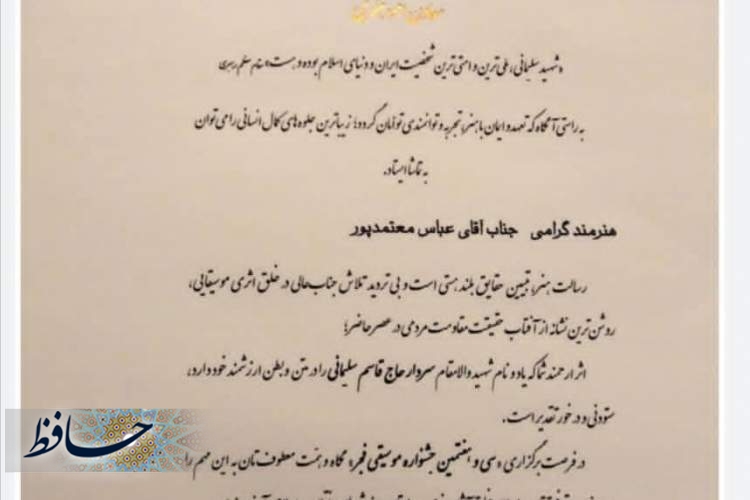 «شهید سلیمانی، ملی‌ترین و امتی‌ترین شخصیت ایران و دنیای اسلام بوده و هست» مقام معظم رهبری
به راستی آنگاه که تعهد و ایمان با هنر، تجربه و توانمندی توأمان گردد؛ زیباترین جلوه‌های کمال انسانی را می‌توان
به تماشا ایستاد.
هنرمند گرامی جناب آقای عباس معتمدپور
رسالت هنر، تبیین حقایق بلند هستی است و بی‌تردید تلاش جنابعالی در خلق اثری موسیقایی،
روشن‌ترین نشانه از آفتاب حقیقت مقاومت مردمی در عصر حاضر؛
اثر ارجمند شما که یاد و نام شهید والامقام سردار حاج قاسم سلیمانی را در متن و بطن ارزشمند خود دارد،
ستودنی و در خور تقدیر است.
در فرصت برگزاری «سی و هفتمین جشنواره موسیقی فجر» نگاه و همت معطوف‌تان به این مهم را
حافظ